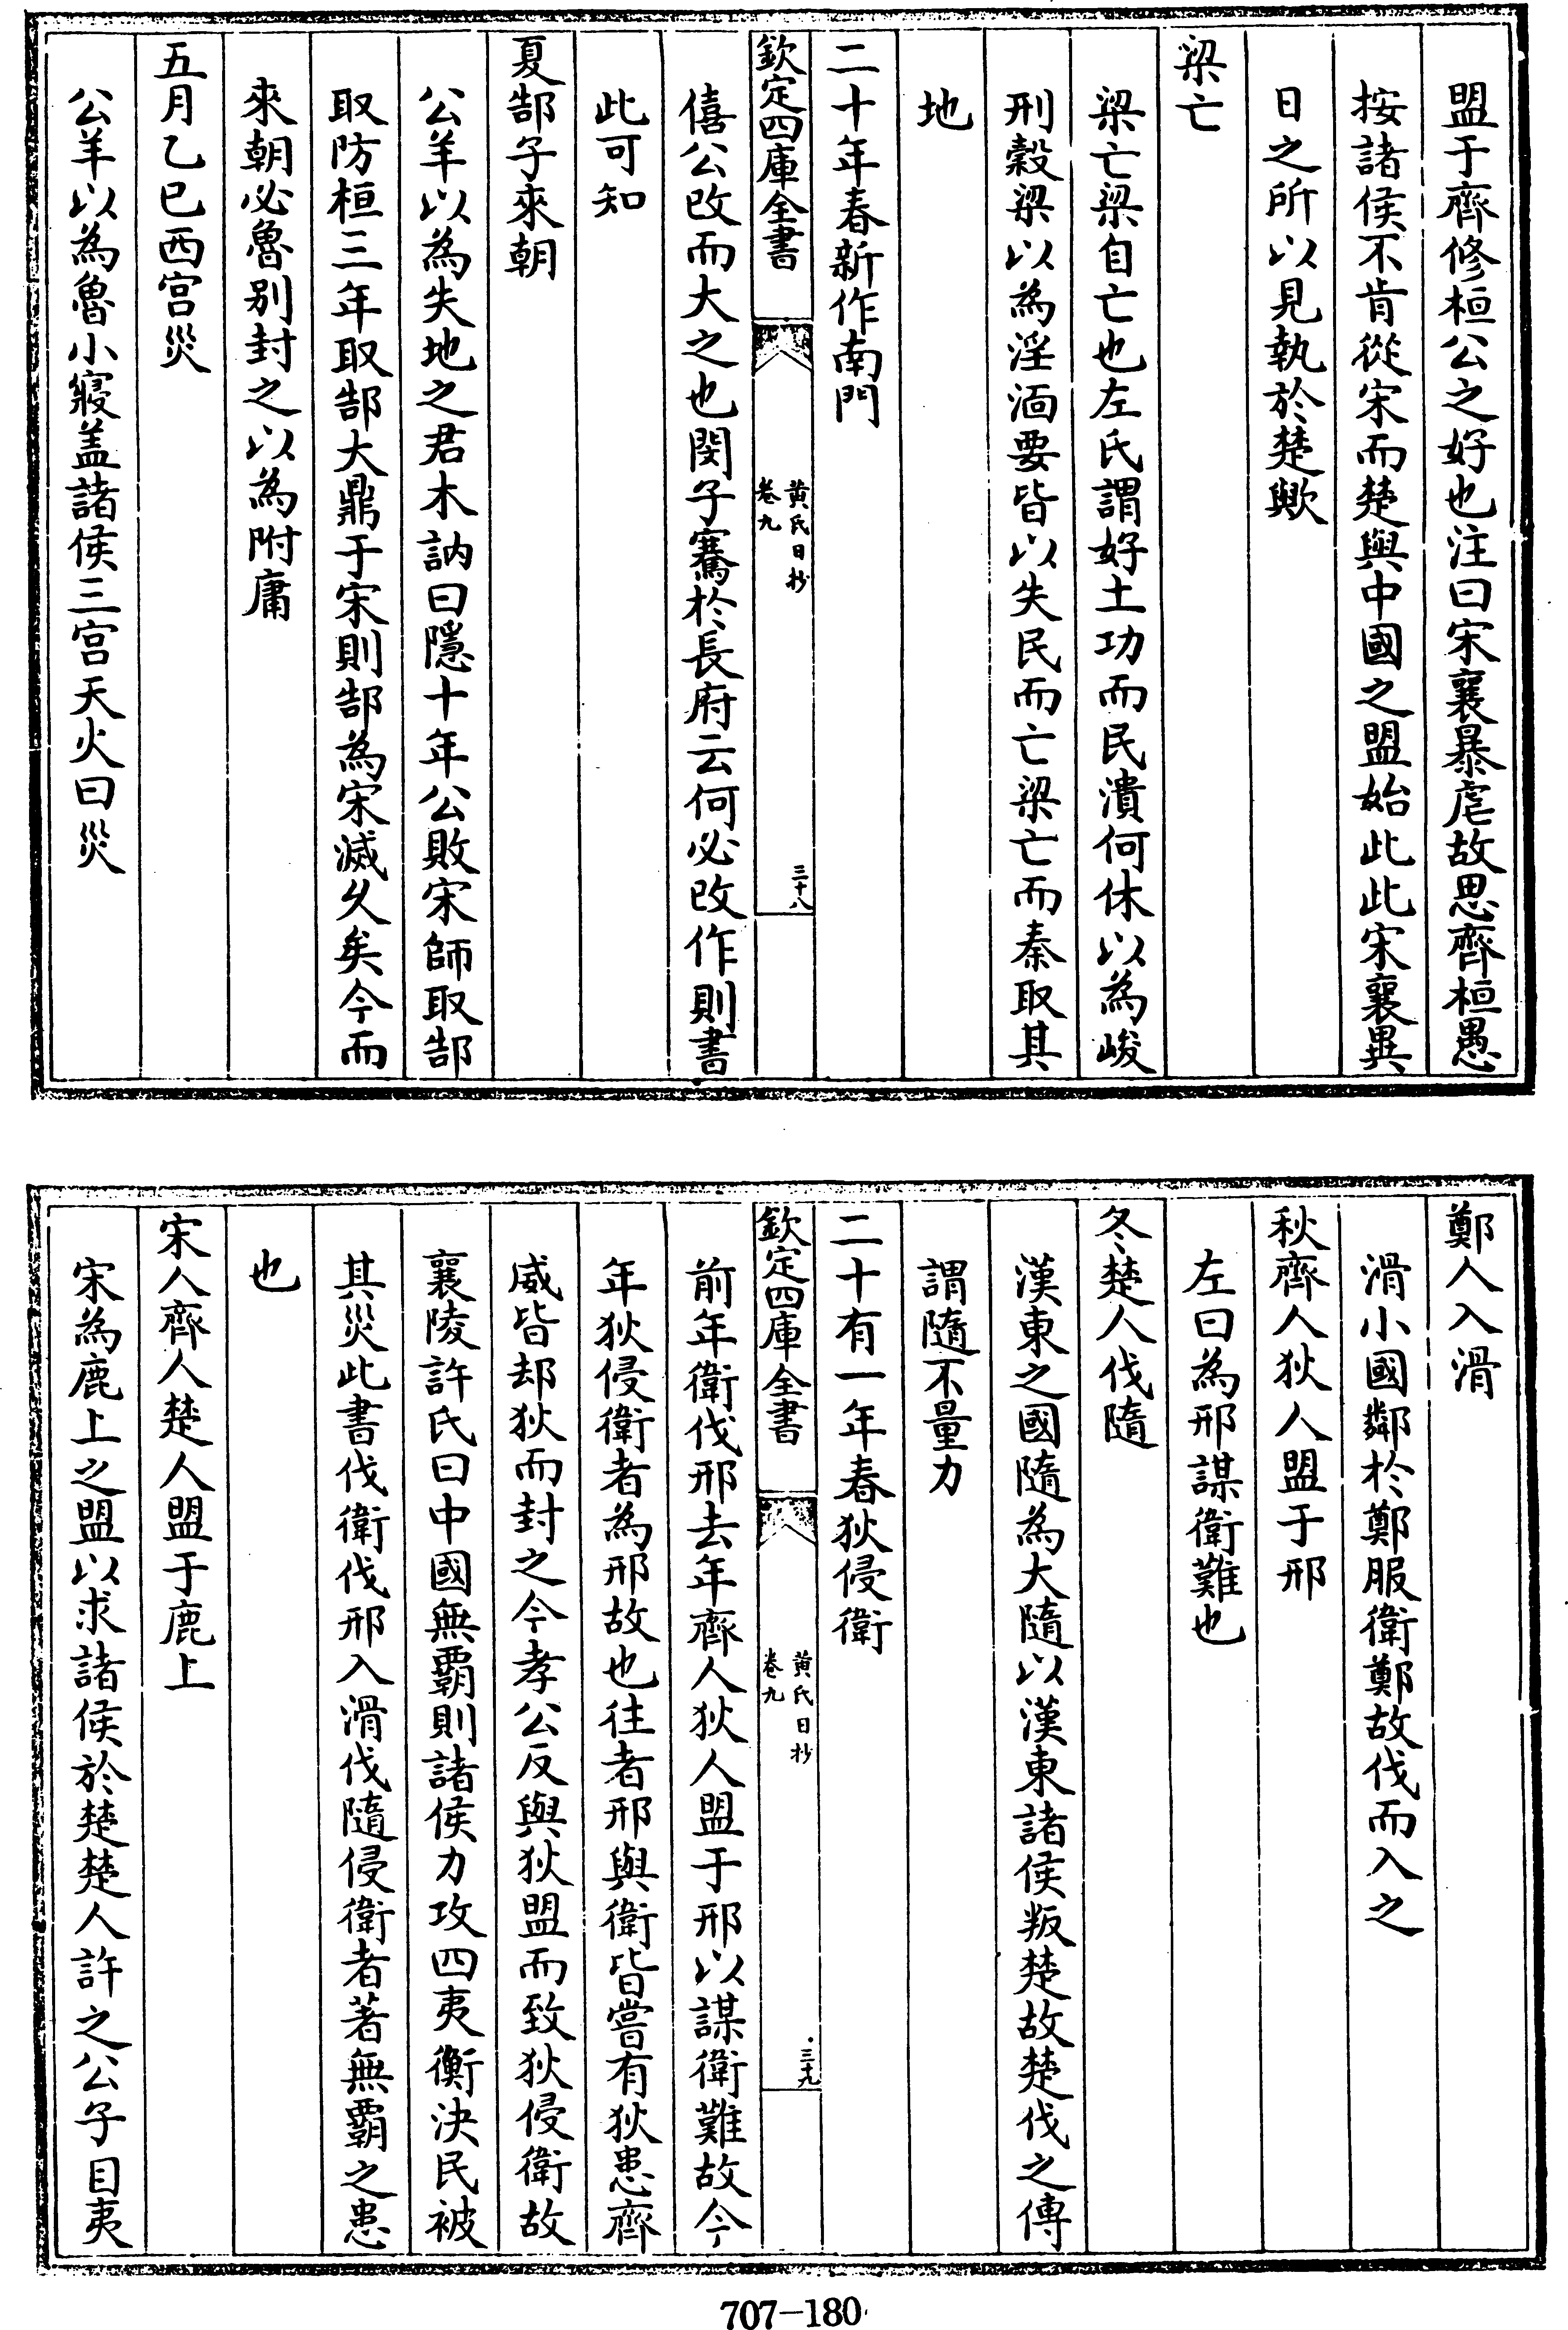 盟于齊修桓公之好也注曰宋襄暴虐故思齊桓愚
按諸侯不肯從宋而楚與中國之盟始此此宋襄異
日之所以見執於楚歟
梁亡
梁亡梁自亡也左氏謂好土功而民潰何休以為峻
刑榖梁以為淫湎要皆以失民而亡梁亡而秦取其
地
二十年春新作南門
欽定四庫全書
黄氏日抄
卷九
三十八
僖公改而大之也閔子騫於長府云何必改作則書
此可知
夏郜子來朝
公羊以為失地之君木訥曰隱十年公敗宋師取郜
取防桓三年取郜大鼎于宋則郜為宋滅久矣今而
來朝必魯别封之以為附庸
五月乙巳西宫災
公羊以為魯小寢盖諸侯三宫天火曰災
鄭人入滑
滑小國鄰於鄭服衛鄭故伐而入之
秋齊人狄人盟于邢
左曰為邢謀衛難也
冬楚人伐隨
漢東之國隨為大隨以漢東諸侯叛楚故楚伐之傳
謂隨不量力
二十有一年春狄侵衛
欽定四庫全書
黄氏日抄
卷九
三十九
前年衛伐邢去年齊人狄人盟于邢以謀衛難故今
年狄侵衛者為邢故也往者邢與衛皆嘗有狄患齊
威皆却狄而封之今孝公反與狄盟而致狄侵衛故
襄陵許氏曰中國無霸則諸侯力攻四夷衡決民被
其災此書伐衛伐邢入滑伐隨侵衛者著無霸之患
也
宋人齊人楚人盟于鹿上
宋為鹿上之盟以求諸侯於楚楚人許之公子目夷
707-180